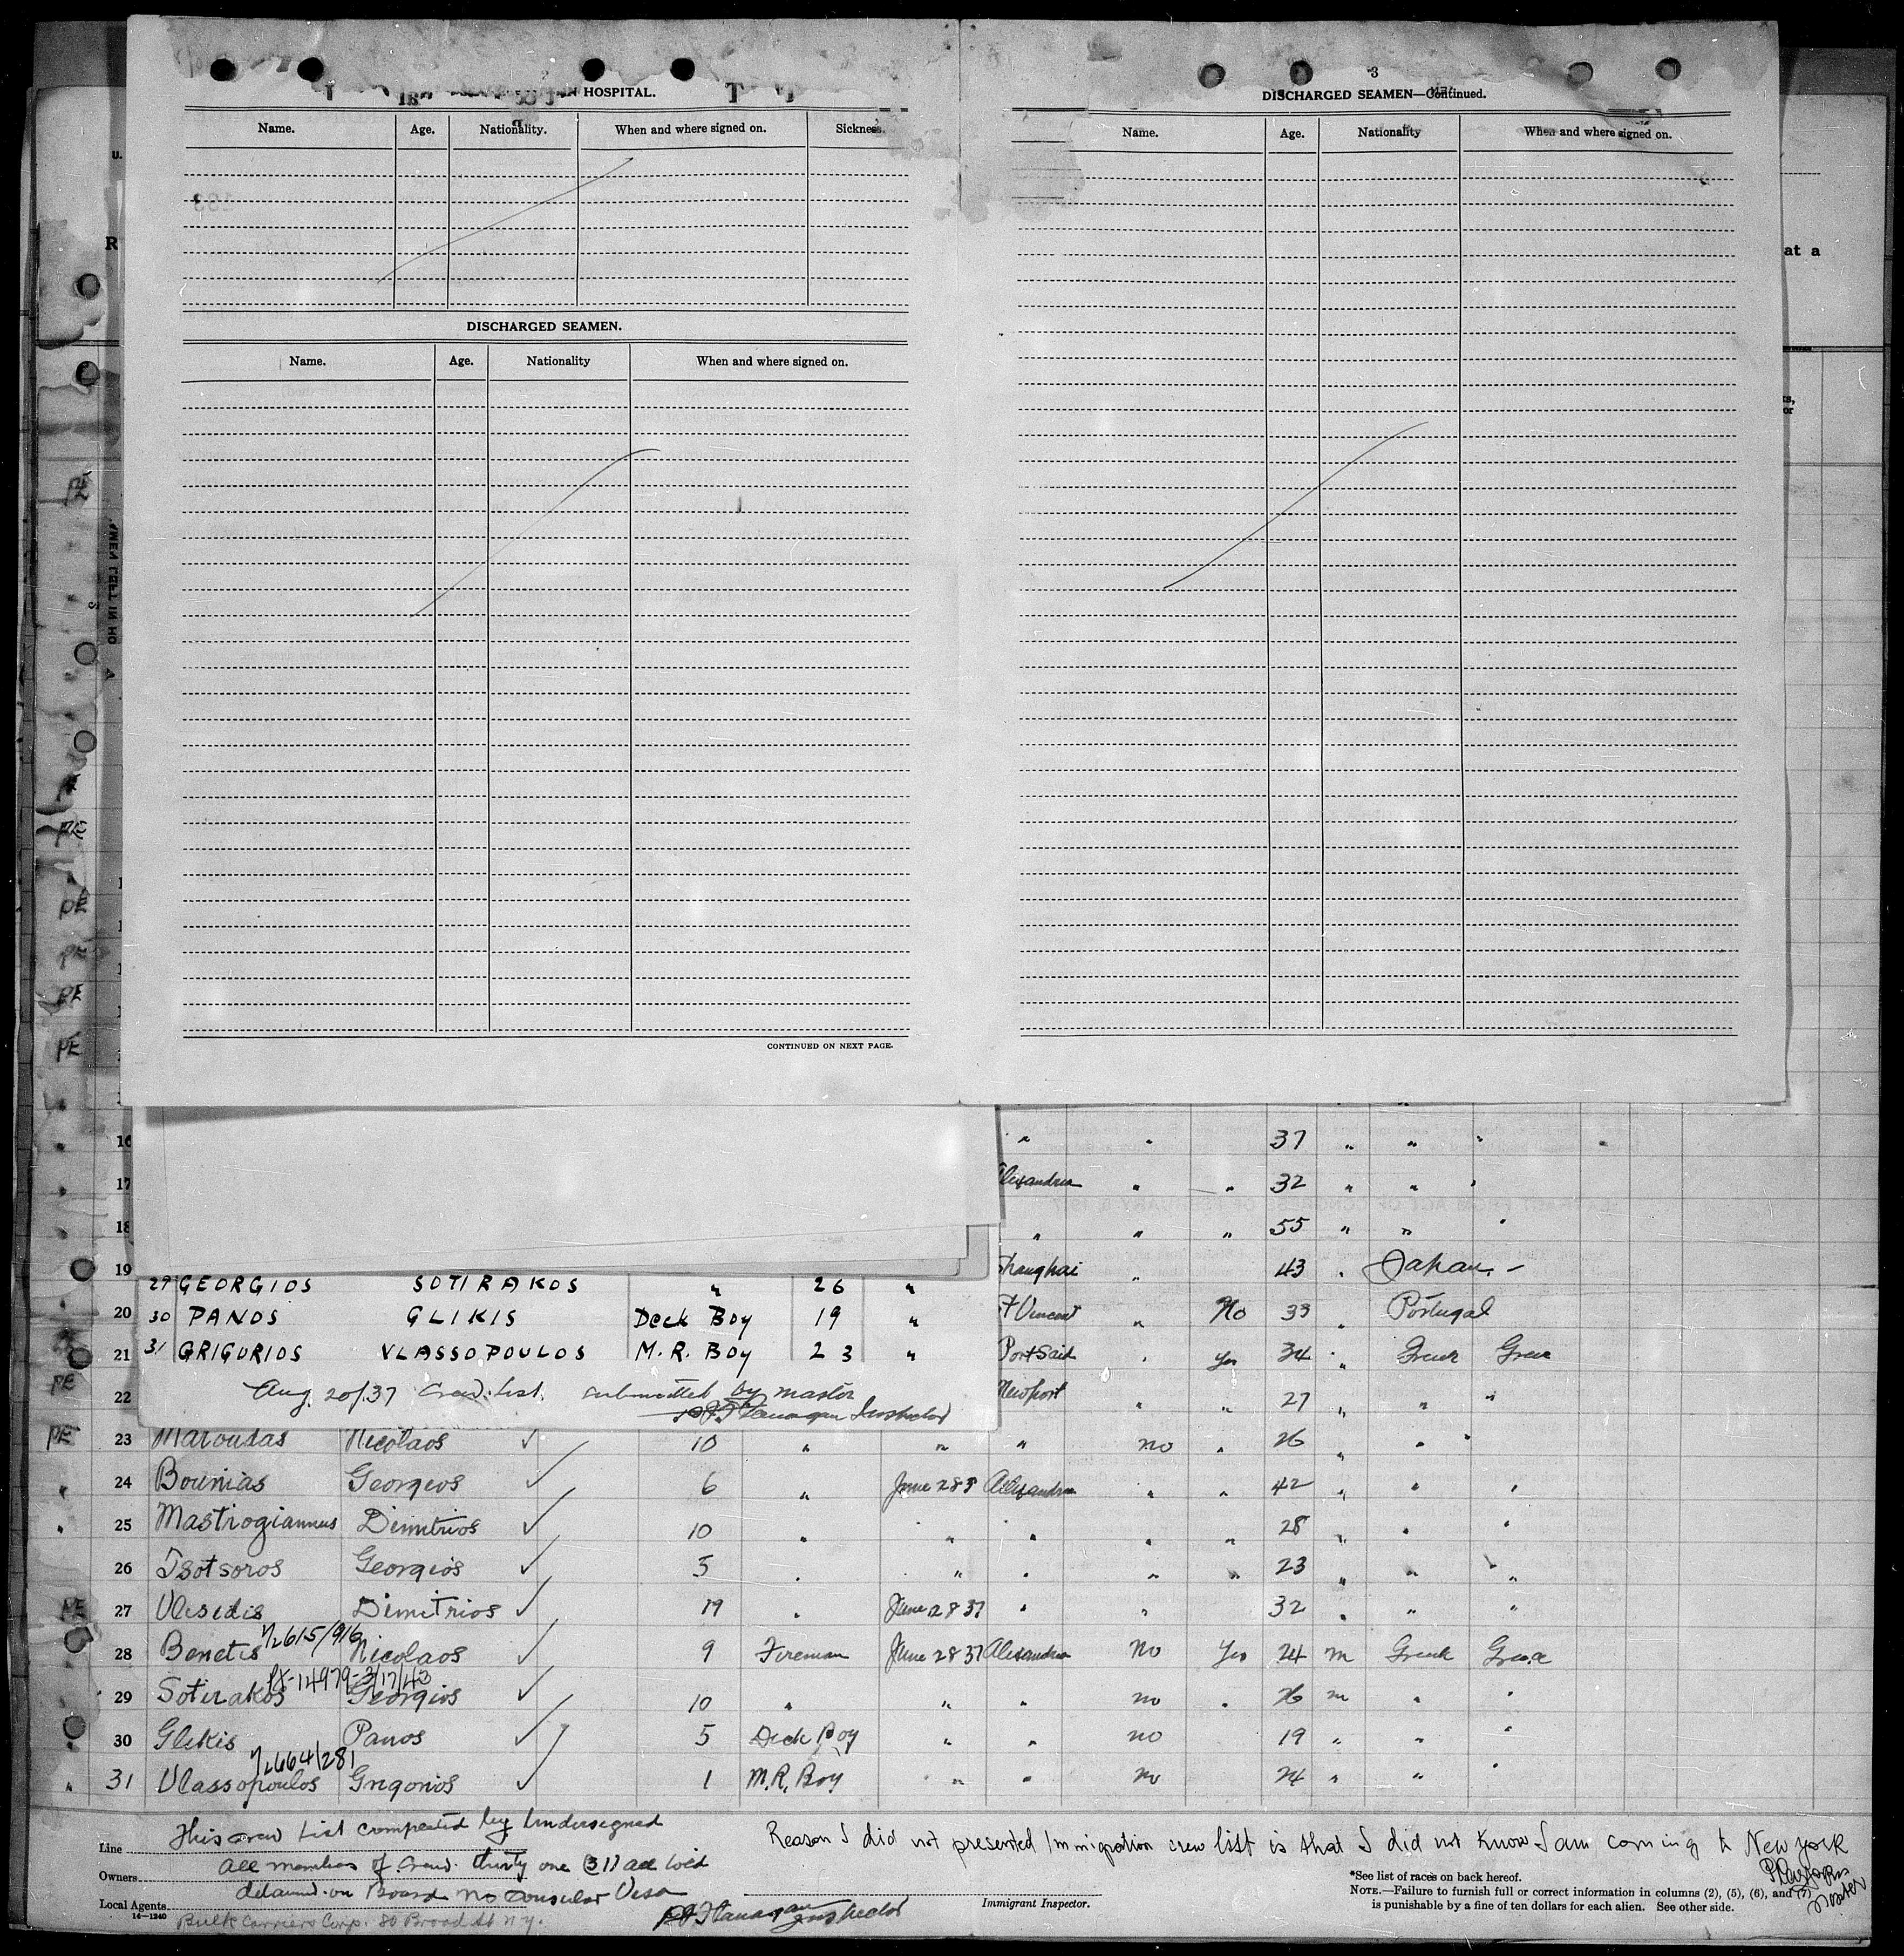 HOSPITAL.
Name. Age. Nationality. When and where signed on. Sickness.
DISCHARGED SEAMEN.
Name. Age. Nationality When and where signed on.
CONTINUED ON NEXT PAGE.
3
DISCHARGED SEAMEN—Continued.
Name. Age. Nationality When and where signed on.
at a
PE
PE
PE
PE
PE
16 " " 37 " " "
17 Alexandria " " 32 " " "
18 " " " 55 " " "
19 Shanghai " 43 " Japan. -
20 St Vincent " No 33 " Portugal
21 Port Said " Yes 34 " Greek Greece
22 Newport " " 27 " " "
29 GEORGIOS SOTIRAKOS " 26 "
30 PANOS GLIKIS Deck Boy 19 "
31 GRIGORIOS VLASSOPOULOS M. R. Boy 23 "
Aug. 20/37 Crew List. submitted by master
P.J. Flanagan Inspector
PE 23 Maroudas Nicolaos ✓ 10 " " " no " 26 " " "
24 Bounias Georgeos ✓ 6 " June 28 37 Alexandria " " 42 " " "
25 Mastrogiannus Dimitrios ✓ 10 " " " " " 28 " " "
26 Tsotsoros Georgios ✓ 5 " " " " " 23 " " "
PE 27 Vlesidis Dimitrios ✓ 19 " June 28 37 " " 32 " " "
1/2615/916
28 Benetis Nicolaos ✓ 9 Fireman June 28 37 Alexandria No Yes 24 m Greek Greece
PX-14979-3/17/43
29 Sotirakos Georgios ✓ 10 " " " no " 26 m " "
30 Glekis Panos ✓ 5 Deck Boy " " no 19 " " "
1/2664/281
" 31 Vlassopoulos Grigorios ✓ 1 M.R. Boy " " no 24 " " "
This crew list completed by Undersigned
Line
all members of Crew. thirty one (31) all told
Owners
detained on Board no Consular Visa
Local Agents
14—1240
Bulk Carriers Corp. 80 Broad St N.Y.
P.J. Flanagan Inspector
Reason I did not presented Immigration crew list is that I did not know I am coming to New York
Master
Immigrant Inspector.
*See list of races on back hereof.
NOTE.—Failure to furnish full or correct information in columns (2), (5), (6), and (7)
is punishable by a fine of ten dollars for each alien. See other side.